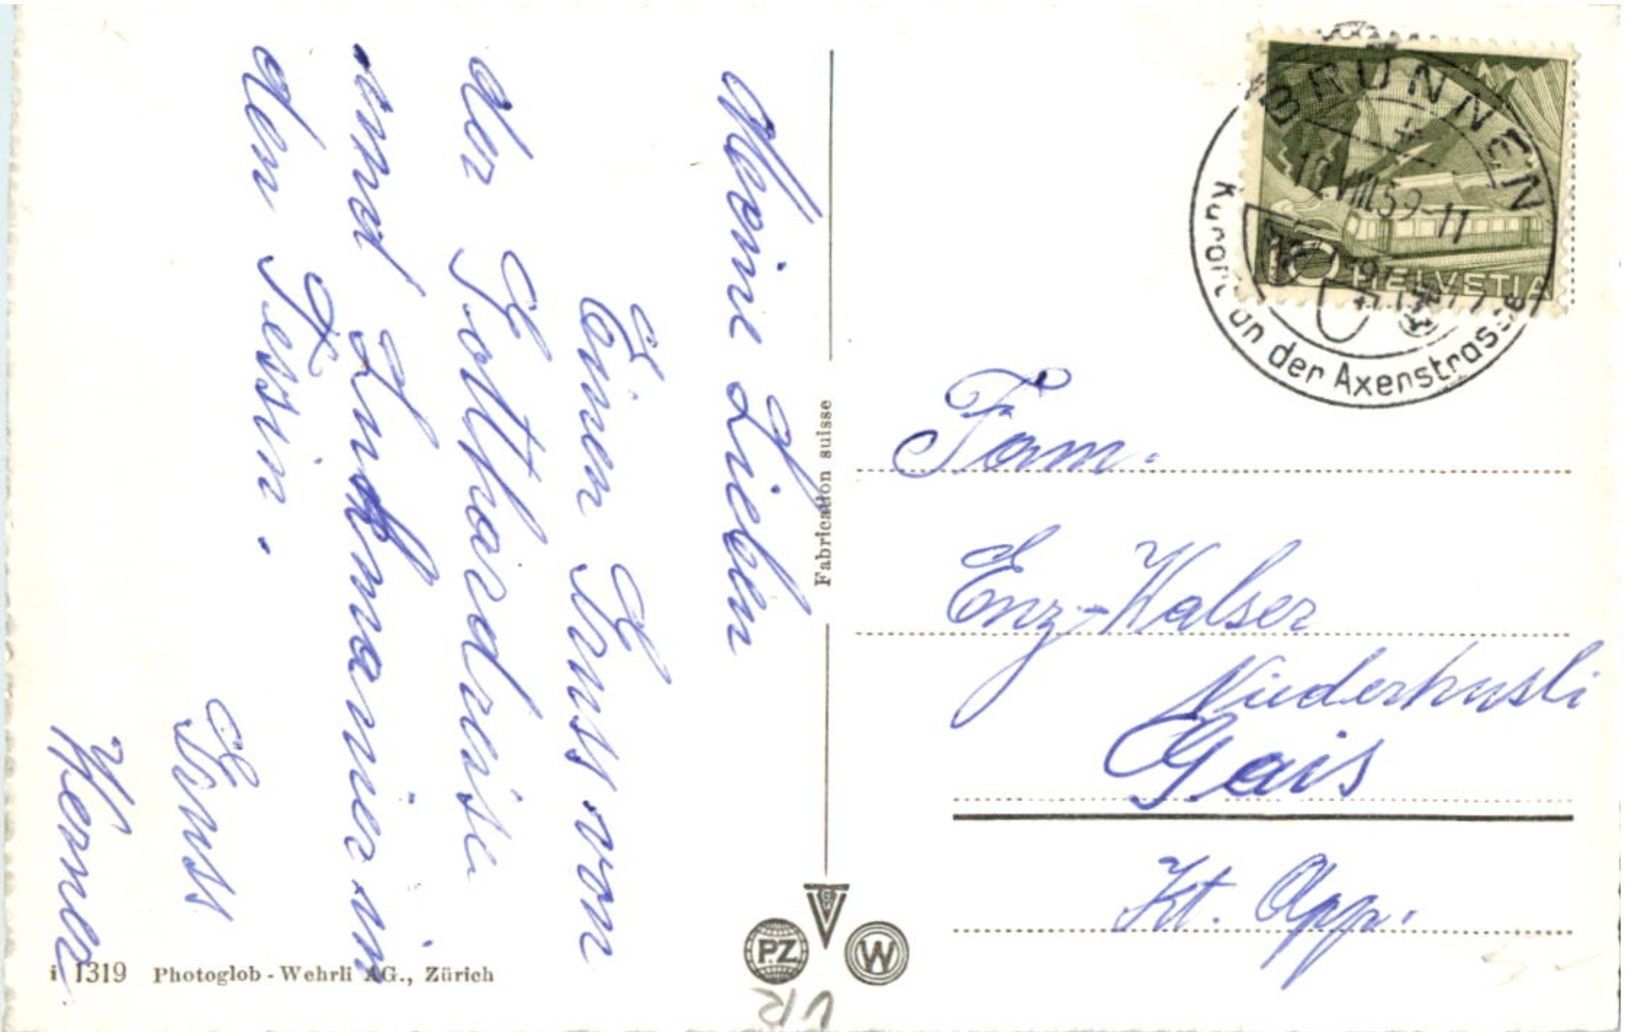 Meine Lieben
Einen Gruss von
der Gotthardreise
und Lukmanier in
den Tessin.
Gruss
Werner
Fabrication suisse
BRUNNEN
VIII.59-11
Kurort an der Axenstrasse
10 HELVETIA
Fam.
Enz-Walser
Niederhusli
Gais
Kt. App.
PZ
W
i 1319 Photoglob-Wehrli AG., Zürich